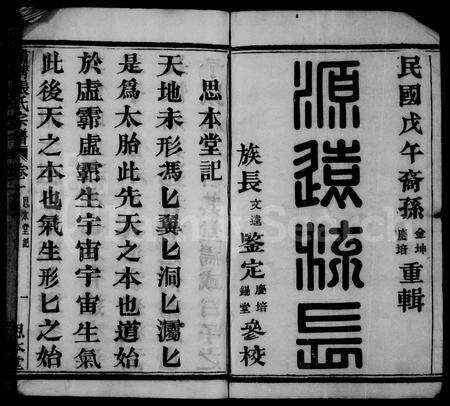 民國戊午裔孫金坤慶培重輯
源遠流長
族長文遠鑒定慶培錫堂參校
思本堂記
天地未形馮匕翼匕洞匕灟匕
是爲太胎此先天之本也道始
於虛霩虛霩生宇宙宇宙生氣
此後天之本也氣生形匕之始
張氏宗譜 卷一 思本堂記 一 思本堂